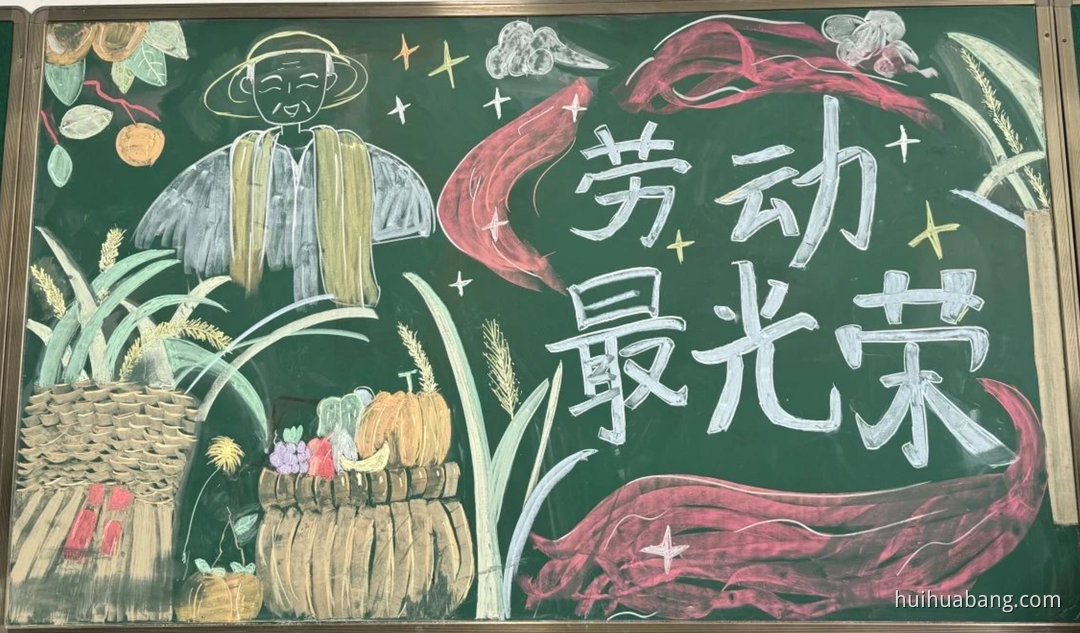 劳动
最光荣
huihuabang.com